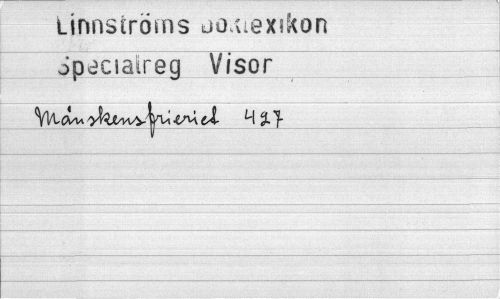 Linnströms Boklexikon
Specialreg Visor
Månskensfrieriet 427